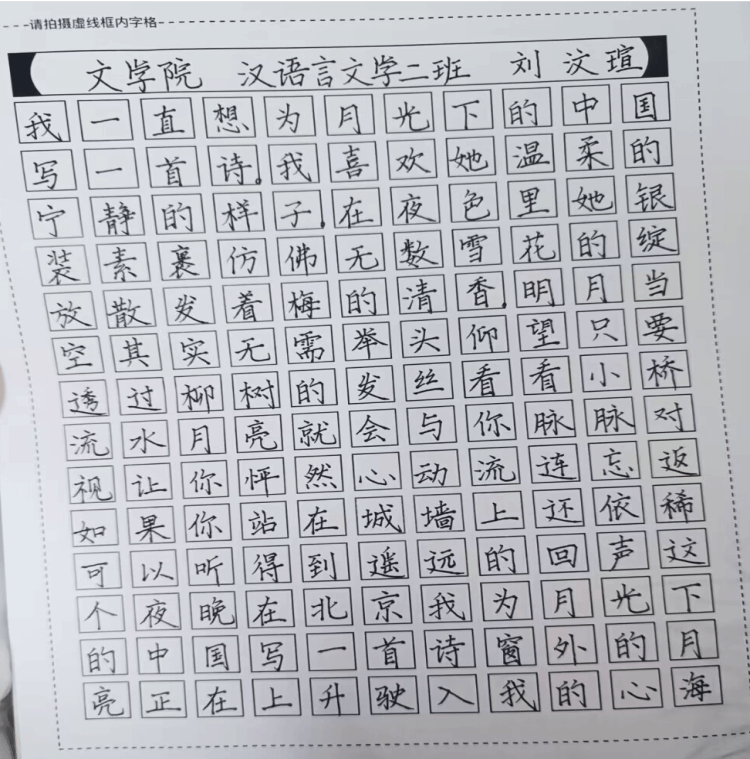 请拍摄虚线框内字格
文学院 汉语言文学二班 刘汶瑄
我一直想为月光下的中国
写一首诗。我喜欢她温柔的
宁静的样子。在夜色里她银
装素裹仿佛无数雪花的绽
放散发着梅的清香。明月当
空其实无需举头仰望只要
透过柳树的发丝看看小桥
流水月亮就会与你脉脉对
视让你怦然心动流连忘返
如果你站在城墙上还依稀
可以听得到遥远的回声这
个夜晚在北京我为月光下
的中国写一首诗窗外的月
亮正在上升驶入我的心海